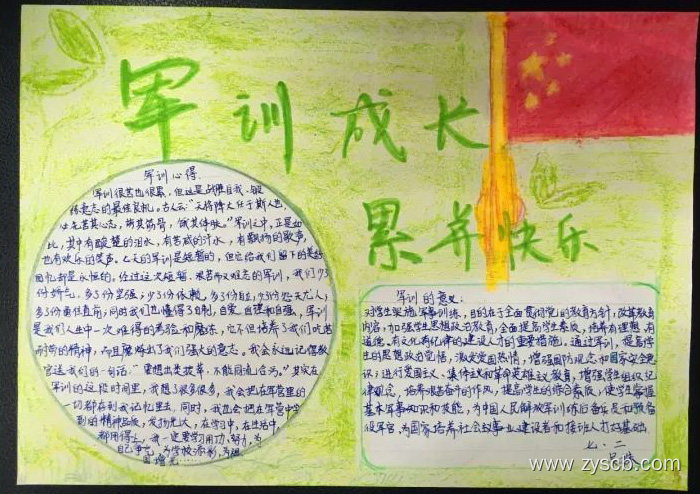 军训成长
累并快乐
军训心得
军训很苦也很累,但这是战胜自我、锻
炼意志的最佳良机。古人云:“天将降大任于斯人也,
必先苦其心志,劳其筋骨,饿其体肤。”军训之中,正是如
此,其中有酸楚的泪水,有苦咸的汗水,有飘扬的歌声,
也有欢乐的笑声。七天的军训是短暂的,但它给我们留下的美好
回忆却是永恒的。经过这次短暂、艰苦而又难忘的军训,我们少了
份娇气,多了份坚强;少了份依赖,多了份自立;少了份怨天尤人,
多了份勇往直前;同时我们也懂得了自制,自爱,自理和自强,军训
是我们人生中一次难得的考验和磨练,它不但培养了我们吃苦
耐劳的精神,而且磨炼出了我们强大的意志。我会永远记得教
官送我们的一句话:“要想出类拔萃,不能同流合污。”其实在
军训的这段时间里,我想了很多很多,我会把在军营里的
一切都存到我记忆里去。同时,我也会把在军营中学
到的精神品质,发扬光大,在学习中,在生活中,
都用得上,我一定要学习用功,努力,为
自己争气,为学校添彩,为祖
国增光
军训的意义:
对学生实施军事训练,目的在于全面贯彻党的教育方针,改革教育
内容,加强学生思想政治教育,全面提高学生素质,培养有理想、有
道德、有文化、有纪律的建设人才的重要措施。通过军训,提高学
生的思想政治觉悟,激发爱国热情,增强国防观念和国家安全意
识;进行爱国主义、集体主义和革命英雄主义教育,增强学生组织纪
律观念,培养艰苦奋斗的作风,提高学生的综合素质;使学生掌握
基本军事知识和技能,为中国人民解放军训练后备兵员和预备
役军官,为国家培养社会主义事业建设者和接班人打好基础。
七·二
www.zyscb.com